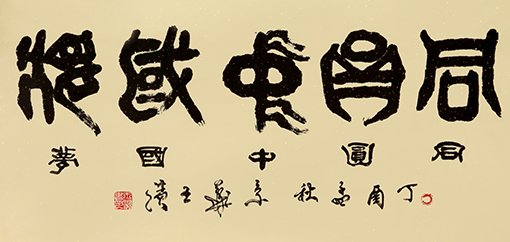 同圓中國夢
同圓中國夢
丁酉孟秋京華王